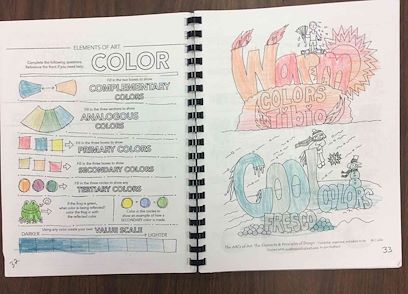 ELEMENTS OF ART
COLOR
Complete the following questions.
Reference the front if you need help.
Fill in the two boxes to show
COMPLEMENTARY
COLORS
Fill in the three sections to show
ANALOGOUS
COLORS
Fill in the three boxes to show
PRIMARY COLORS
Fill in the three boxes to show
SECONDARY COLORS
Fill in the three circles to show any
TERTIARY COLORS
If the frog is green,
what color is being reflected?
color the frog in with
the reflected color.
Color in the circles to
show an example of how a
secondary color is made.
Using any color create your own
VALUE SCALE
DARKER
LIGHTER
37
Warm
COLORS
tibio
Cool
COLORS
FRESCO
33